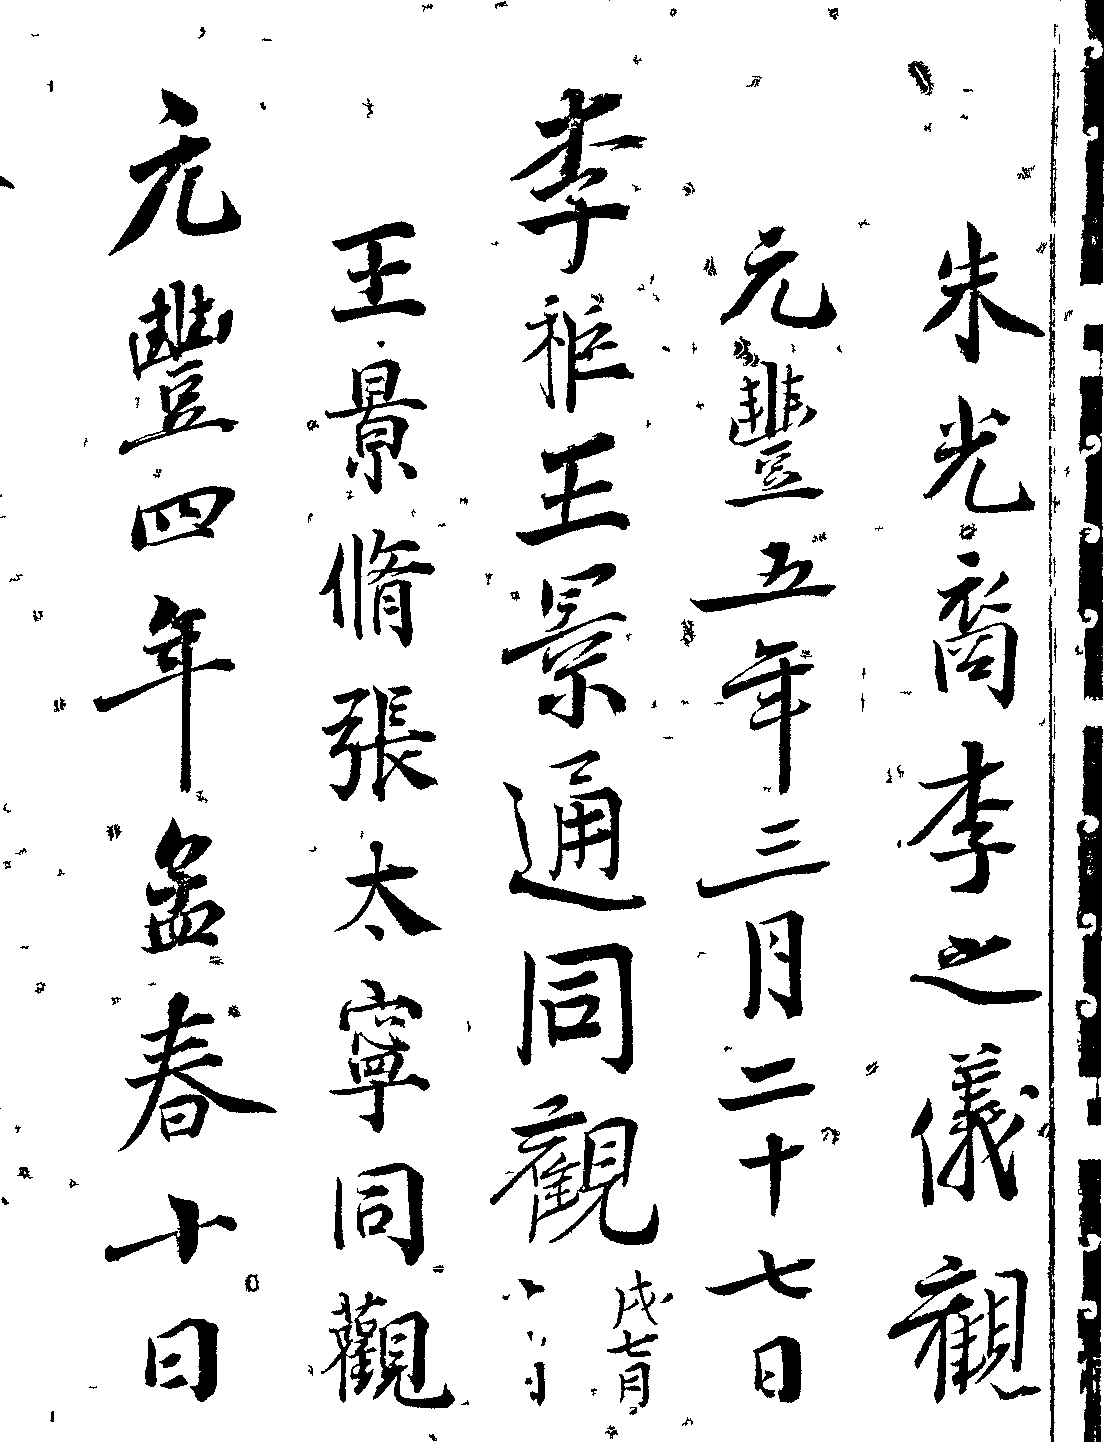 朱光裔李之儀觀
元豐五年三月二十七日
李秬王景通同觀
戌七月
八日
王景脩張太寧同觀
元豐四年孟春十日